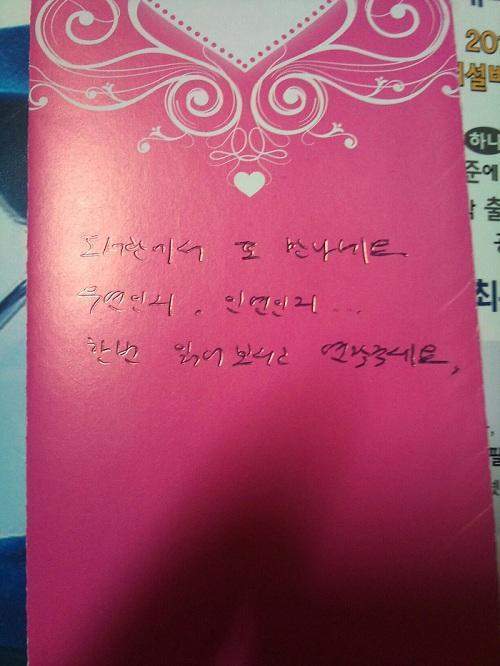 도서관에서 또 만나네요
우연인지, 인연인지...
한번 읽어보시고 연락주세요,
201
설
하나
준에
출
최
필